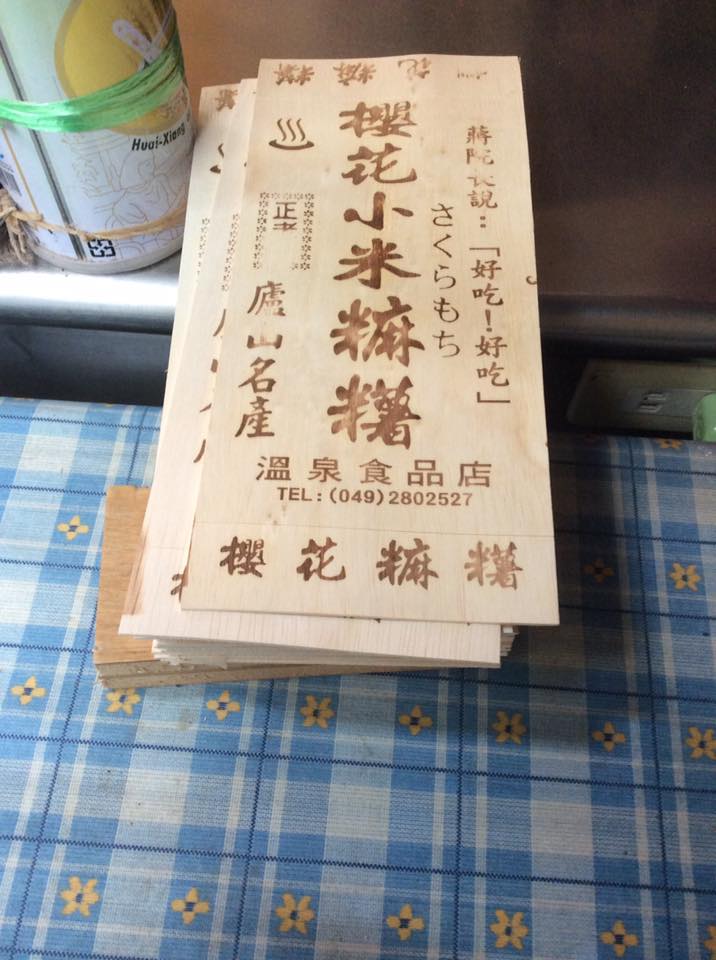 Huai-Xiang
蔣院長說：「好吃！好吃」
さくらもち
櫻花小米𥻵糬
正
廬山名產
溫泉食品店
TEL:(049)2802527
櫻花𥻵糬